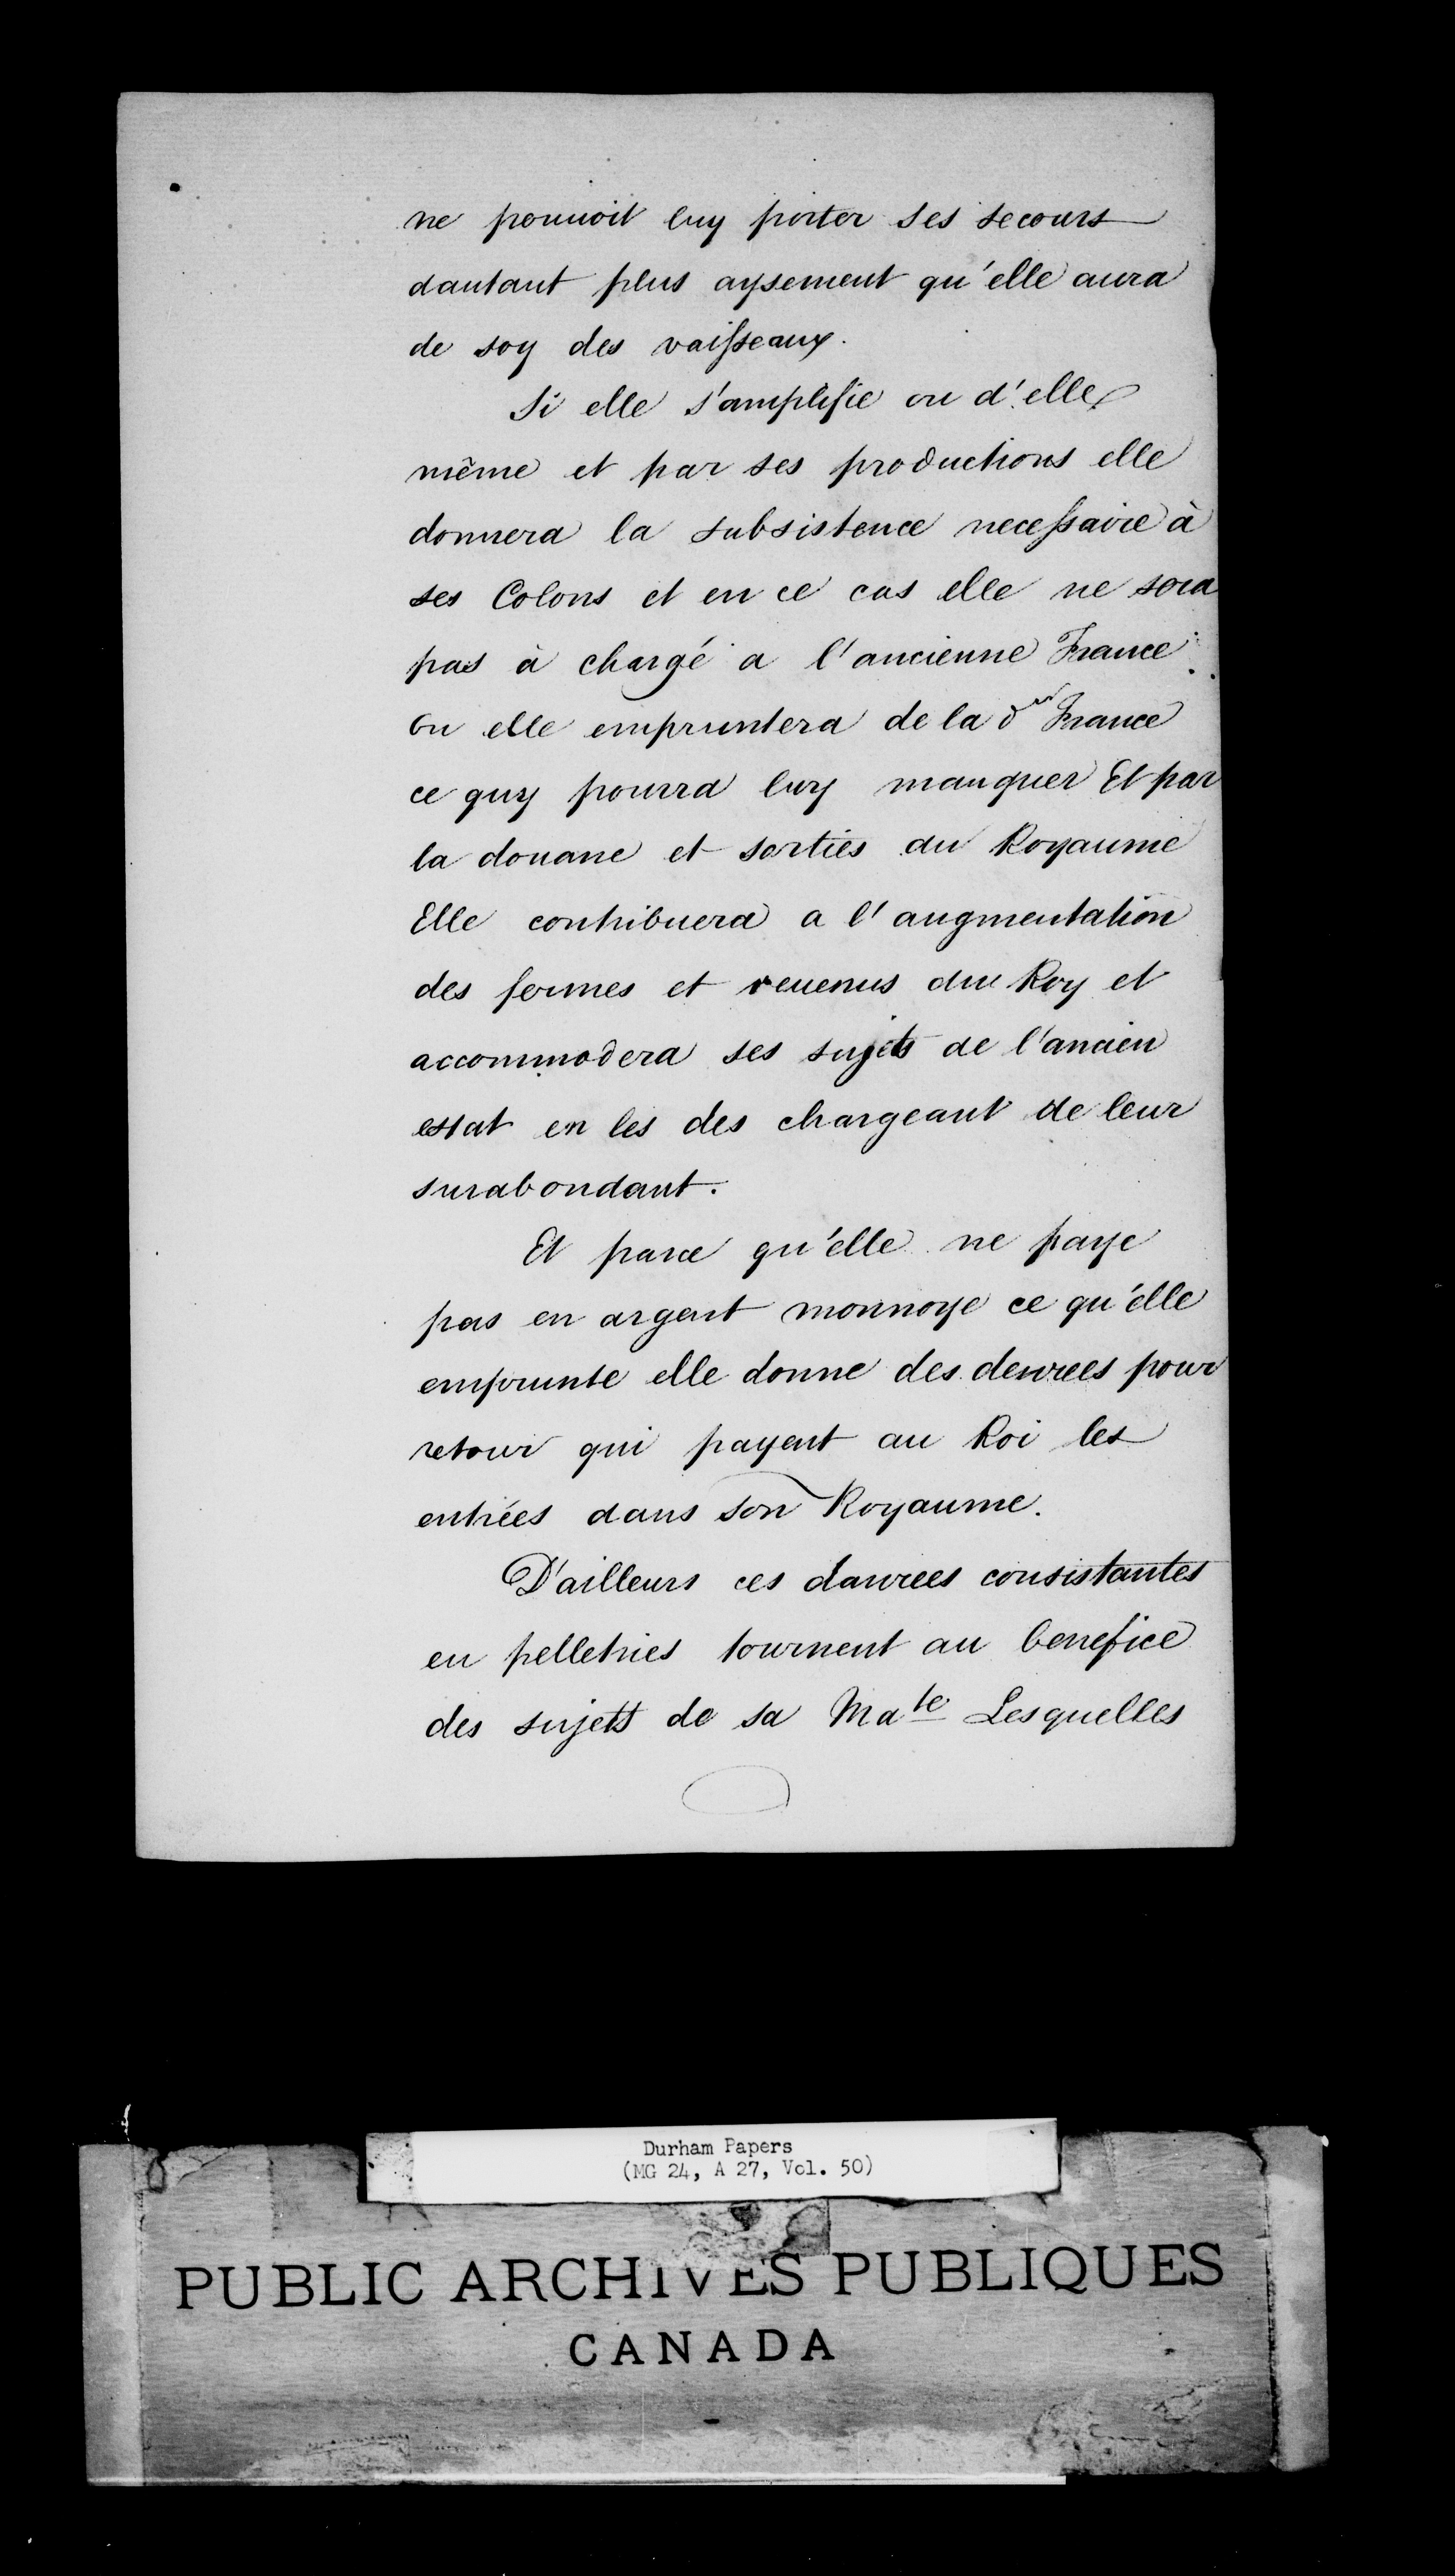 ne pouuoit luy porter ses secours
dautant plus aysement qu'elle aura
de soy des vaisseaux.
Si elle s'amplifie ou d'elle
même et par ses productions elle
donnera la subsistence necessaire à
ses Colons et en ce cas elle ne sera
pas à chargé a l'ancienne France.
Ou elle empruntera de la d France
ce quy pourra luy manquer Et par
la douane et sorties du Royaume
Elle contribuera a l'augmentation
des fermes et reuenus du Roy et
accommodera ses sujets de l'ancien
estat en les des chargeant de leur
surabondant.
Et parce qu'elle ne paye
pas en argent monnoye ce qu'elle
emprunte elle donne des denrees pour
retour qui payent au Roi les
entrées dans son Royaume.
D'ailleurs ces danrees consistantes
en pelletries tournent au benefice
des sujets de sa Mate Lesquelles
Durham Papers
(MG 24, A 27, Vol. 50)
PUBLIC ARCHIVES PUBLIQUES
CANADA